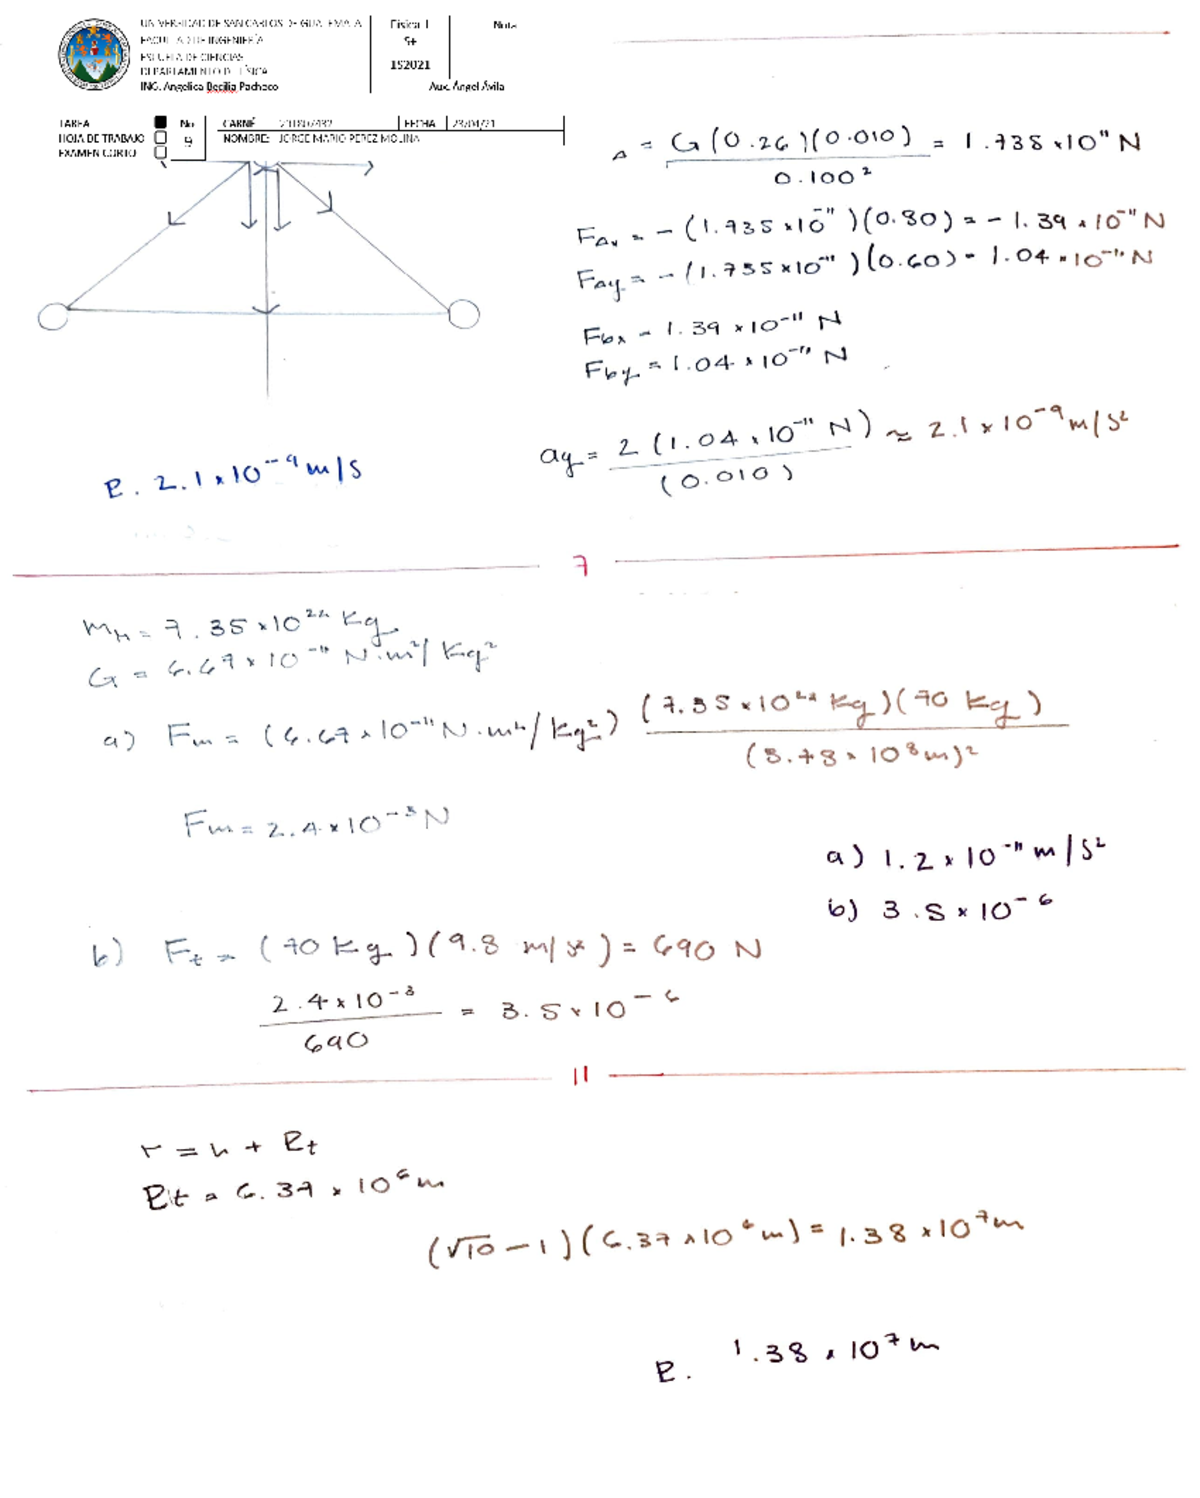 UNIVERSIDAD DE SAN CARLOS DE GUATEMALA
FACULTAD DE INGENIERÍA
ESCUELA DE CIENCIAS
DEPARTAMENTO DE FÍSICA
ING. Angelica Becilia Pacheco
Física 1
S+
1S2021
Nota
Aux. Ángel Ávila
TAREA
HOJA DE TRABAJO
EXAMEN CORTO
No
9
CARNÉ
FECHA 23/04/21
NOMBRE: JORGE MARIO PEREZ MOLINA
= G(0.26)(0.010) / 0.100² = 1.735 x10¹¹ N
F = -(1.735 x10⁻¹¹)(0.80) = -1.39 x10⁻¹¹ N
Fay = -(1.735x10⁻¹¹)(0.60) - 1.04 x10⁻¹¹ N
Fbx = 1.39 x10⁻¹¹ N
Fby = 1.04 x10⁻¹¹ N
ay = 2(1.04 x10⁻¹¹ N) / (0.010) ≈ 2.1 x 10⁻⁹ m/s²
R. 2.1 x10⁻⁹ m/s
7
= 7.35 x10²² Kg
G = 6.67 x10⁻¹¹ N·m²/Kg²
a) Fm = (6.67 x10⁻¹¹ N·m²/kg²) (7.35 x10²² Kg)(70 Kg) / (3.78 x 10⁸ m)²
Fm = 2.4 x10⁻³ N
a) 1.2 x 10⁻¹¹ m/s²
b) 3.5 x 10⁻⁶
b) Ft = (70 Kg)(9.8 m/s²) = 690 N
2.4 x 10⁻³ / 690 = 3.5 x10⁻⁶
11
r = h + Rt
Rt = 6.37 x 10⁶ m
(√10 - 1)(6.37 x10⁶ m) = 1.38 x10⁷ m
R. 1.38 x 10⁷ m